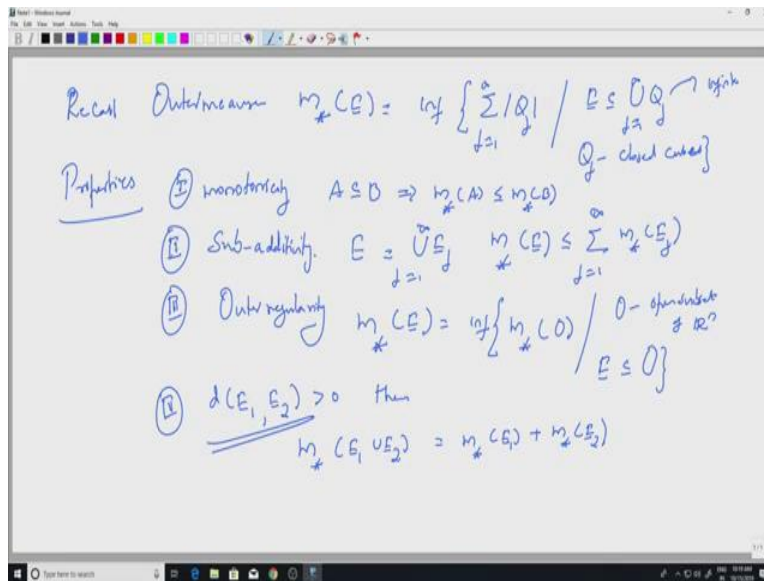 Note1 - Windows Journal
File Edit View Insert Actions Tools Help
Recall Outermeasure m_*(E) = inf { ∑_{j=1}^∞ |Q_j| / E ⊆ ∪_{j=1}^∞ Q_j → infinite
Q_j - closed cubes }
Properties (I) monotonicity A ⊆ B ⇒ m_*(A) ≤ m_*(B)
(II) Sub-additivity. E = ∪_{j=1}^∞ E_j m_*(E) ≤ ∑_{j=1}^∞ m_*(E_j)
(III) Outer regularity m_*(E) = inf { m_*(O) / O - open subset of ℝ^n
E ⊆ O }
(IV) d(E_1, E_2) > 0 then
m_*(E_1 ∪ E_2) = m_*(E_1) + m_*(E_2)
1/1
Type here to search
ENG 10:19 AM